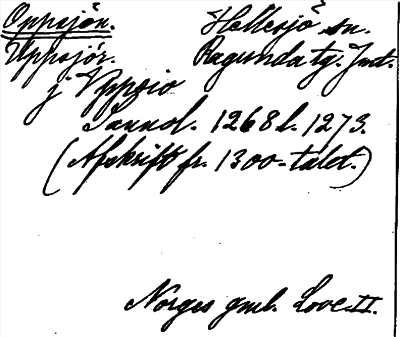 Oppsjön. Hällesjö sn.
Uppsjör. Ragunda tg. Jmt.
j Vppsio
Jannol. 1268 l. 1273.
(Afskrift fr. 1300-talet.)
Norges gml. Love II.